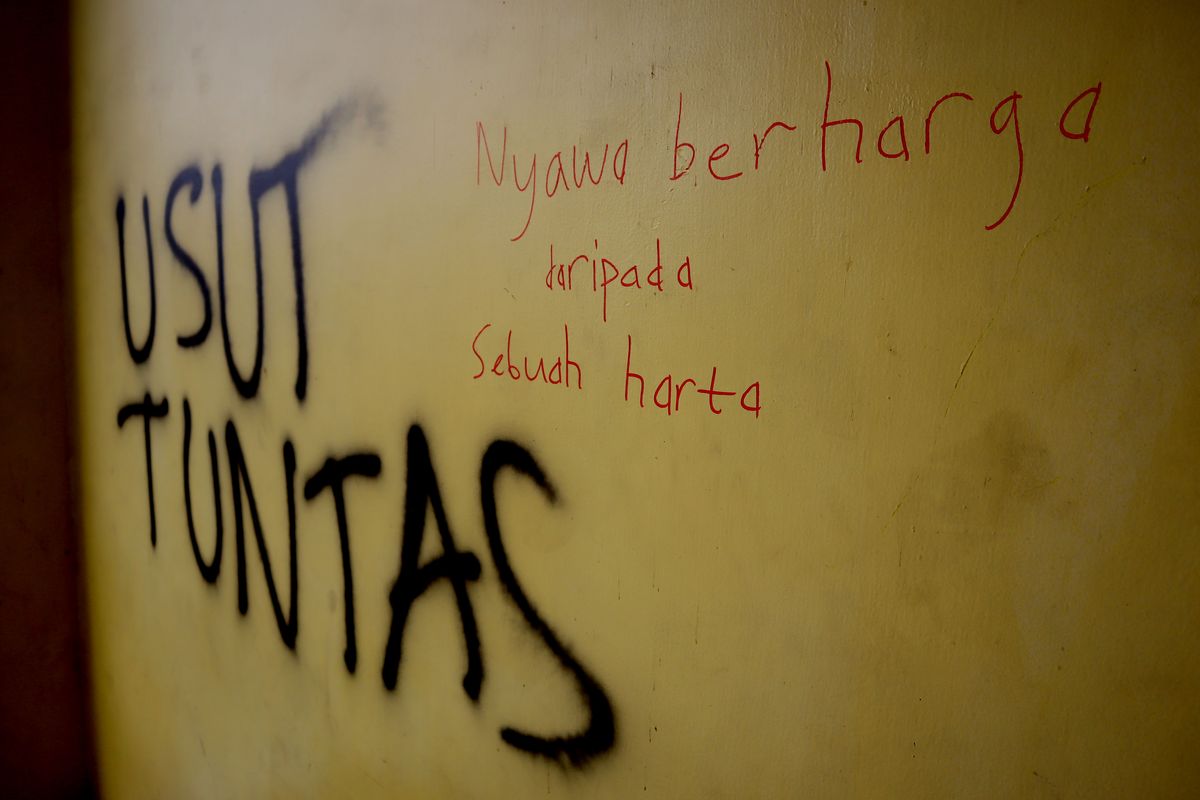 USUT
TUNTAS
Nyawa berharga
daripada
Sebuah harta